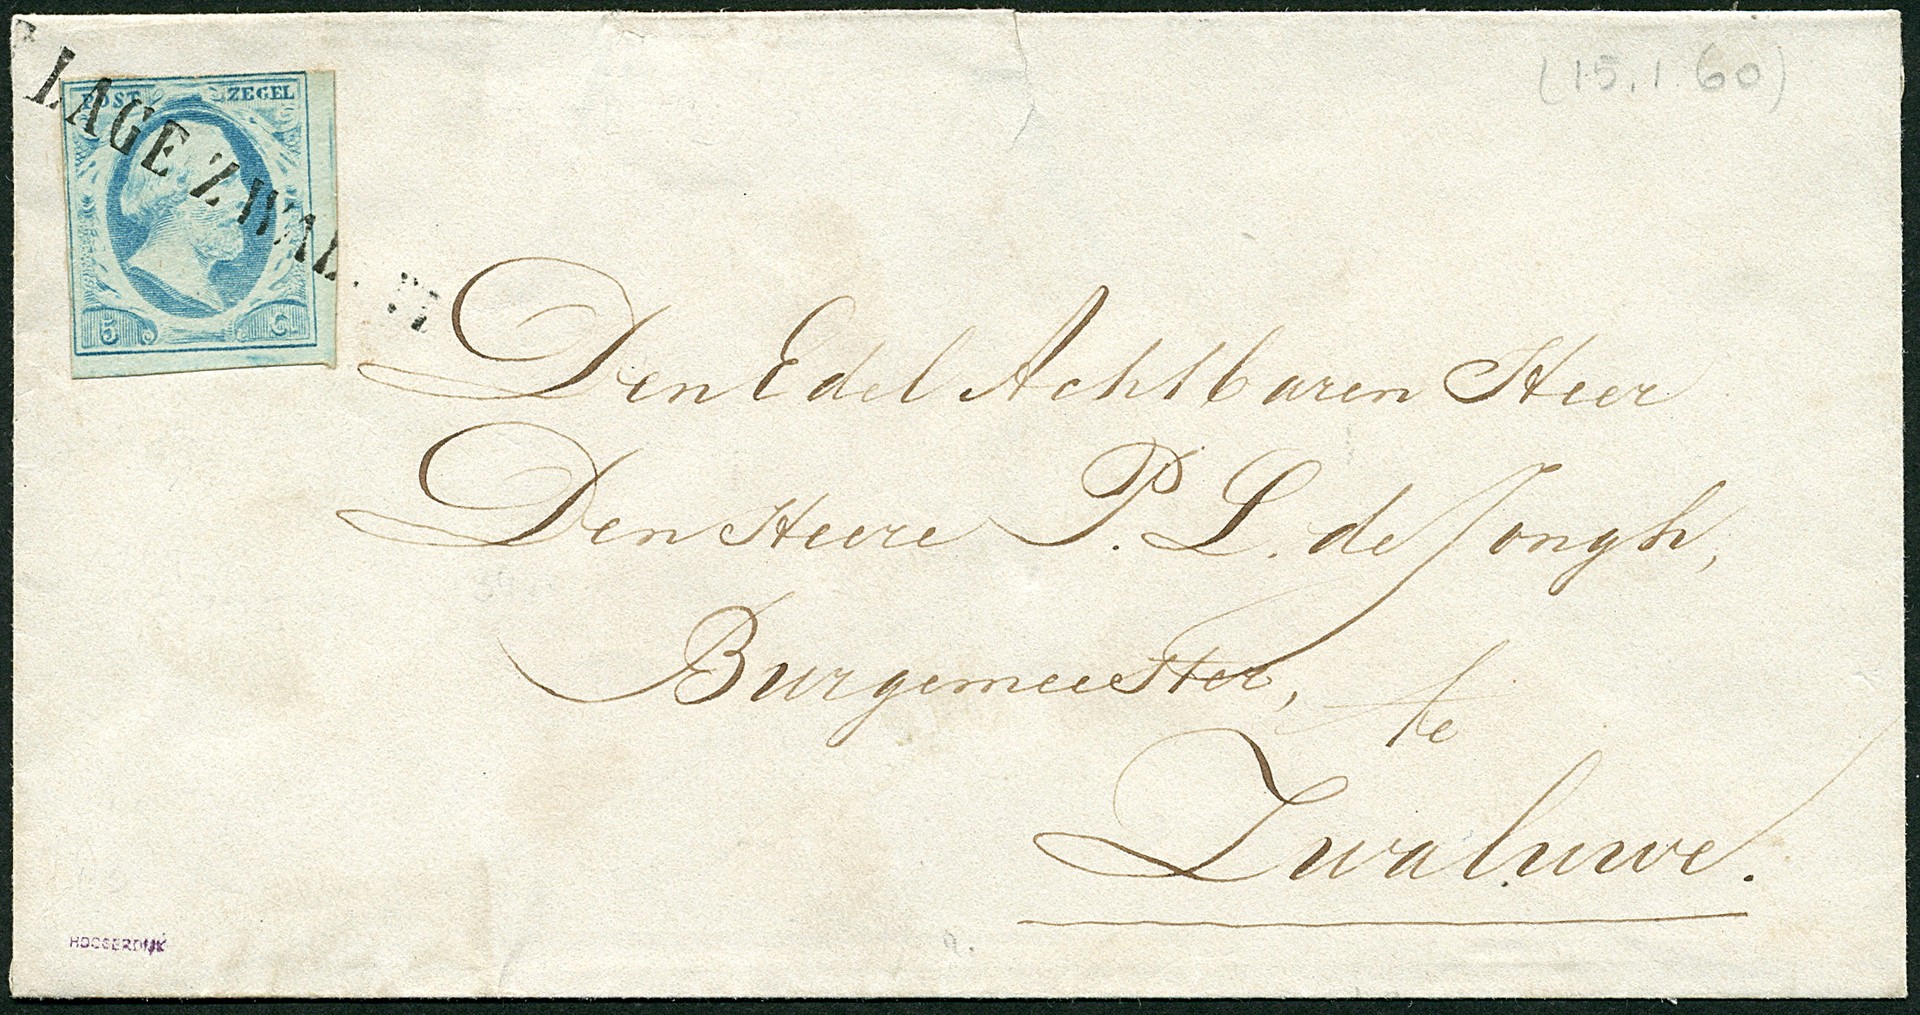 (15.1.60)
POST ZEGEL
LAGE ZWAL
5 Ct
Den Edel Achtbaren Heer
Den Heere P. L. de Jongh,
Burgemeester, te
Zwaluwe.
HOOGERDIJK